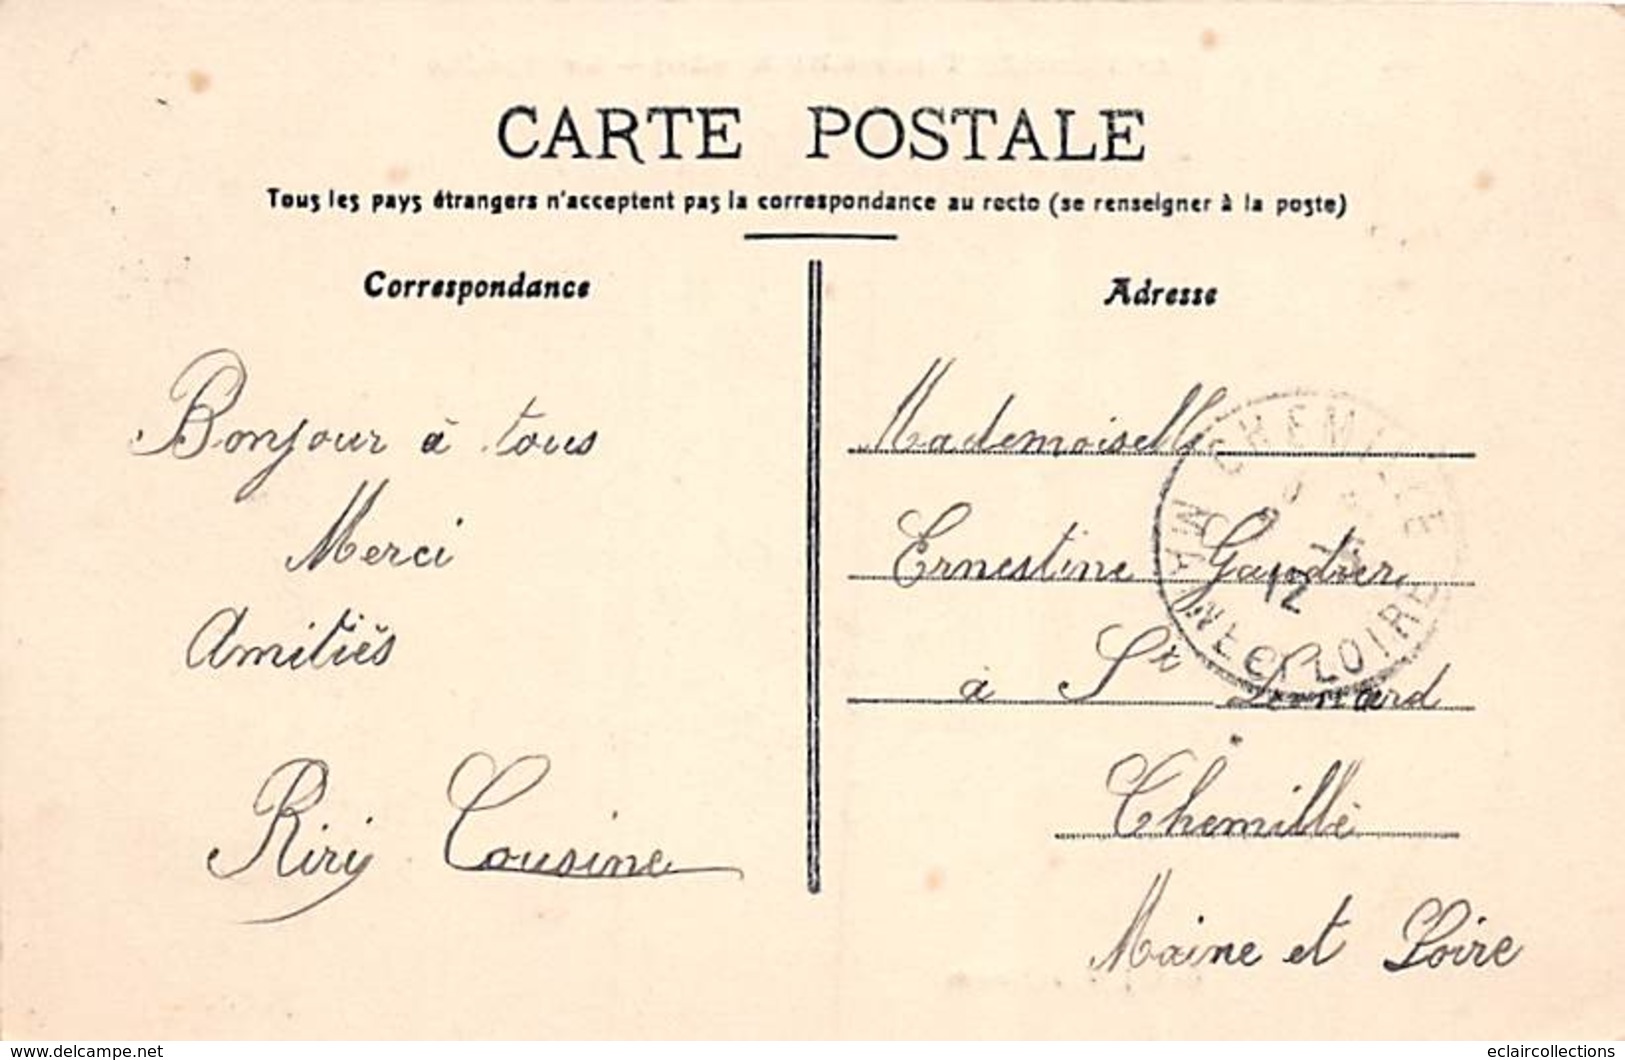 CARTE POSTALE
Tous les pays étrangers n'acceptent pas la correspondance au recto (se renseigner à la poste)
Correspondance
Bonjour à tous
Merci
Amitiés
Riri Cousine
Adresse
Mademoiselle
Ernestine Gaudrer
à St Leonard
Chemillé
Maine et Loire
CHEMILLE
12
MAINE ET LOIRE
www.delcampe.net
eclaircollections